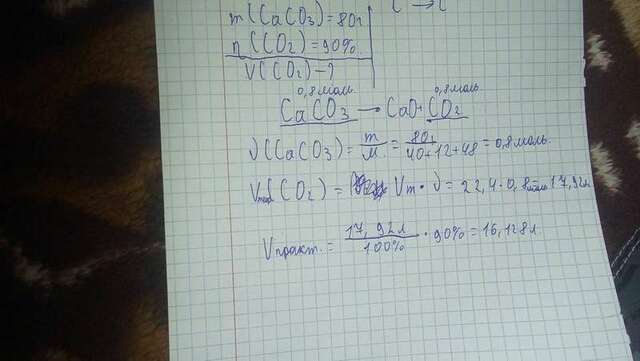 m(CaCO₃)=80г
η(CO₂)=90%
V(CO₂)-?
0,8моль 0,8моль
CaCO₃ → CaO+CO₂
ν(CaCO₃)= m/M = 80г/40+12+48 = 0,8моль.
Vтеор(CO₂) = Vm·ν = 22,4·0,8моль=17,92л
Vпракт. = 17,92л/100% · 90% = 16,128л